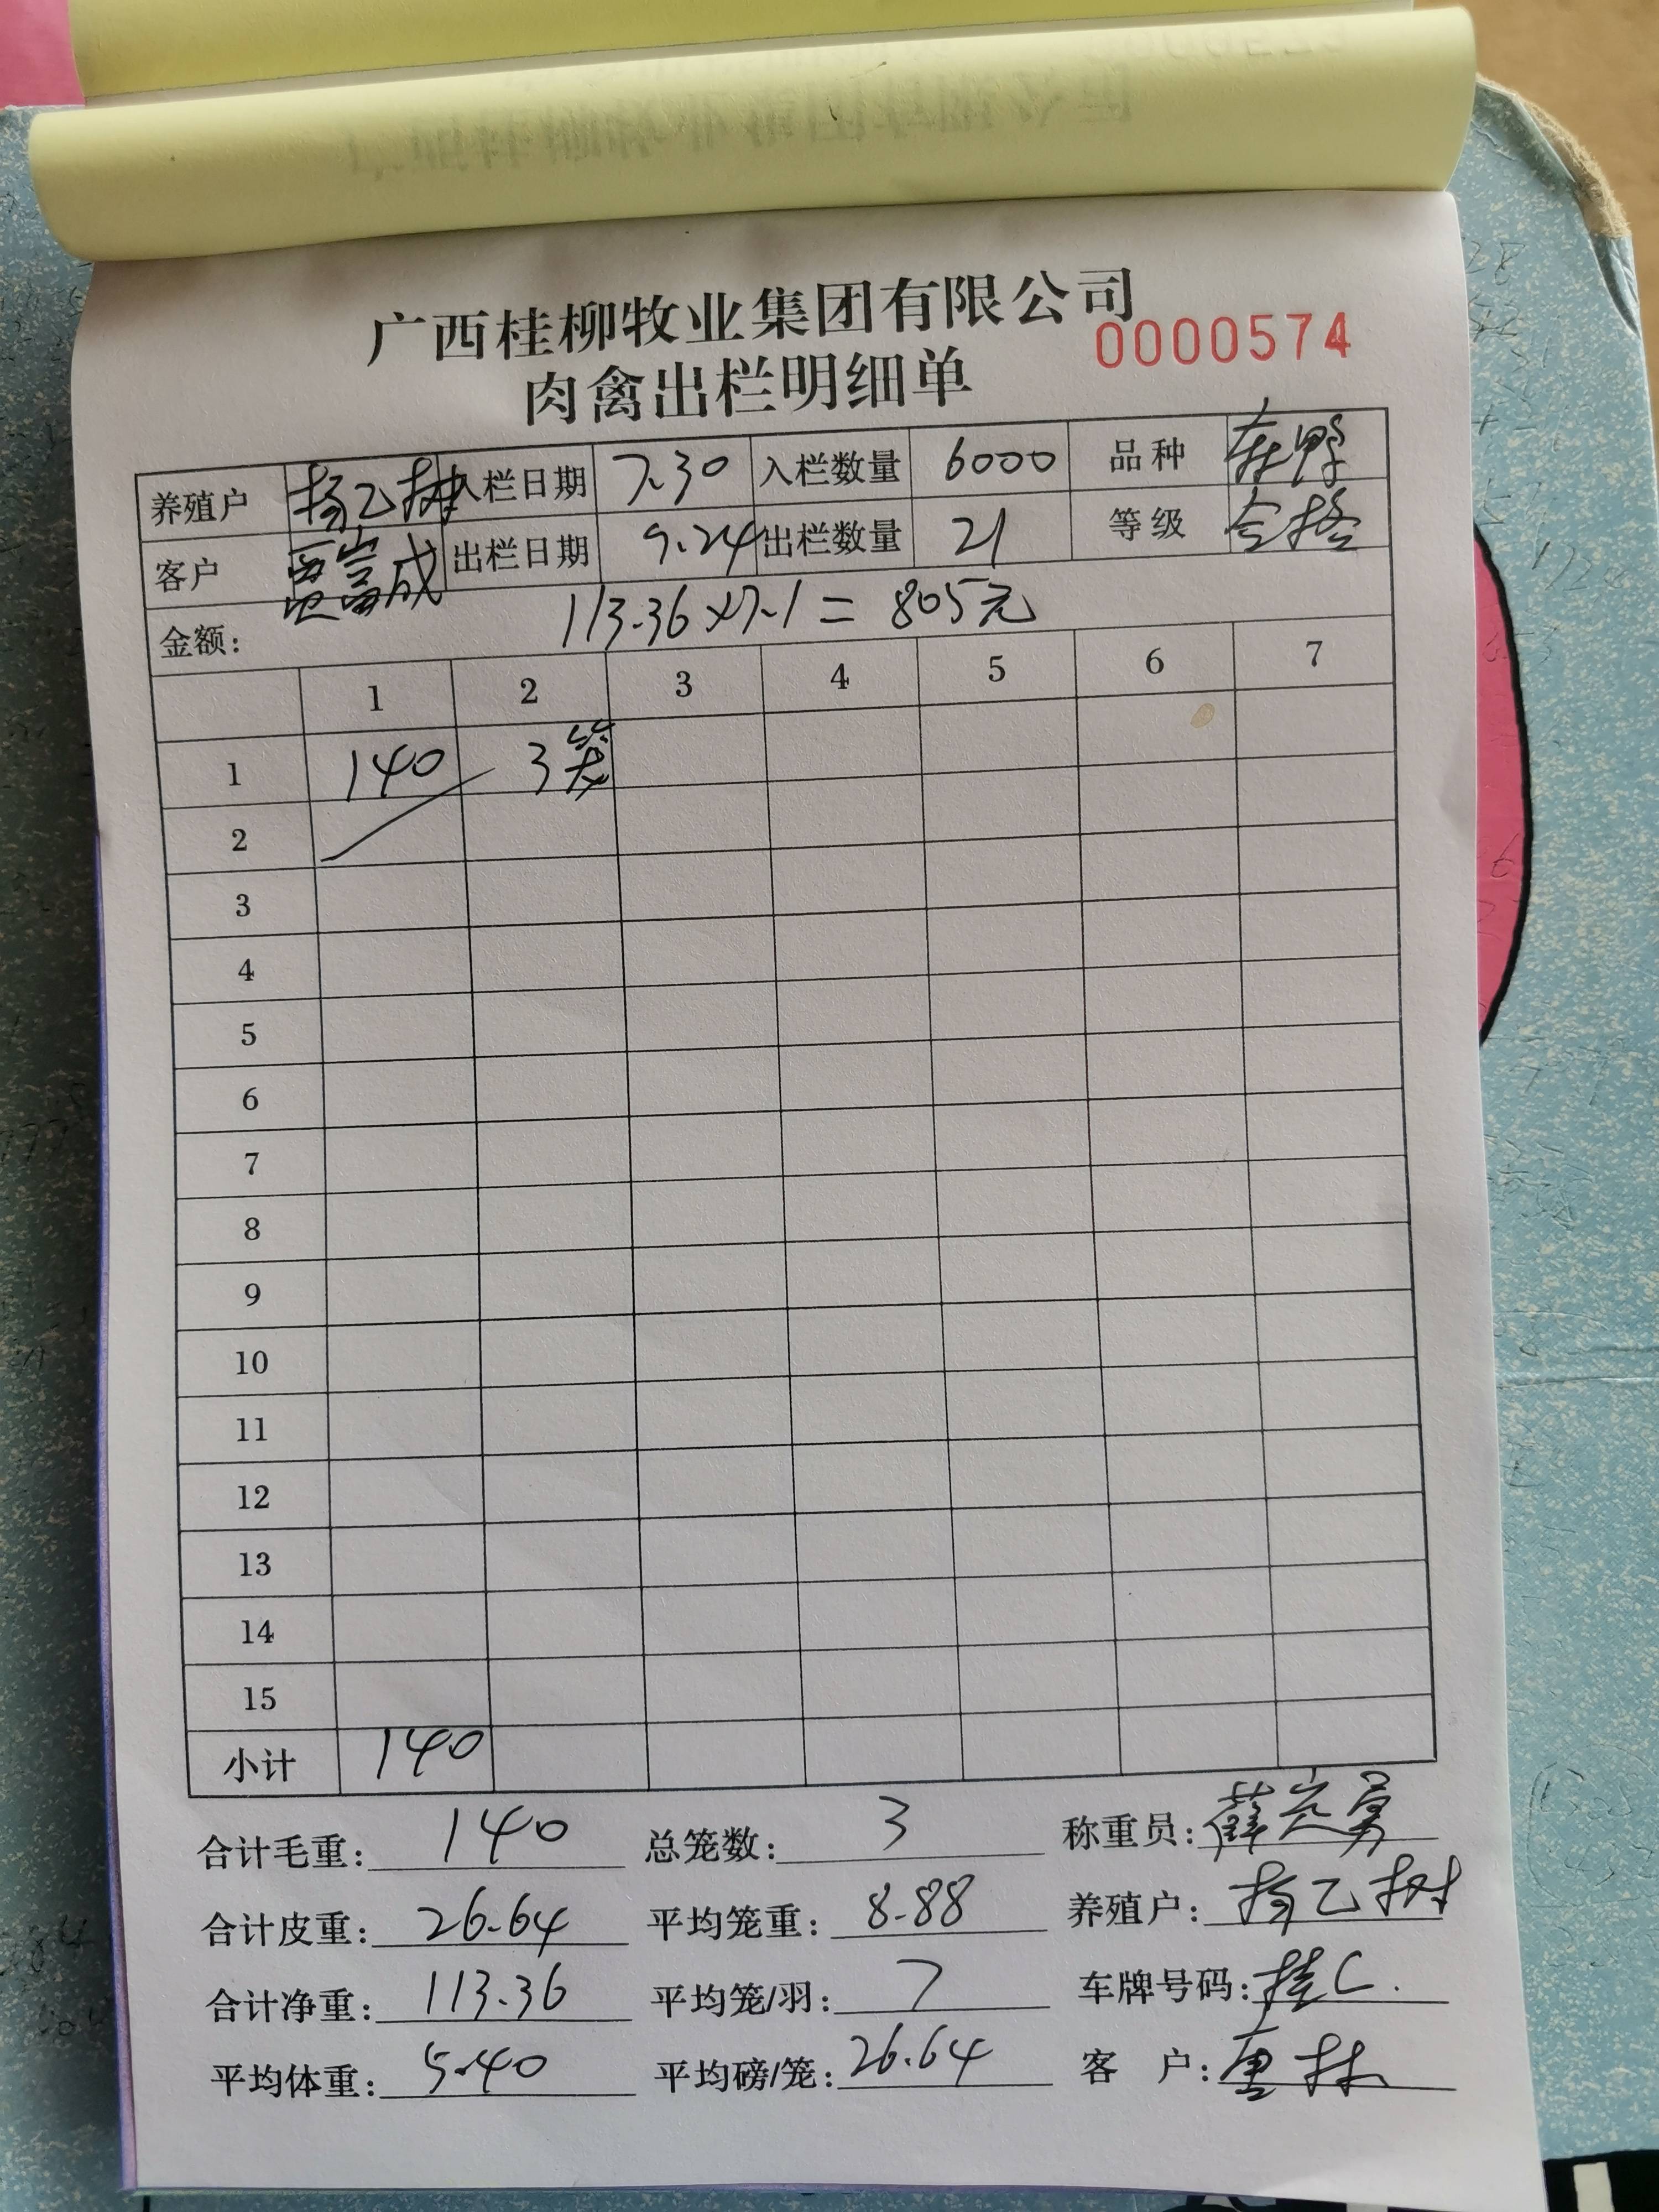 广西桂柳牧业集团有限公司
0000574
肉禽出栏明细单
养殖户 杨乙树 入栏日期 7.30 入栏数量 6000 品种 鸭
客户 富成 出栏日期 9.24 出栏数量 21 等级 合格
金额: 113.36×7.1=805元
1 2 3 4 5 6 7
1 140 3笼
2
3
4
5
6
7
8
9
10
11
12
13
14
15
小计 140
合计毛重: 140 总笼数: 3 称重员: 薛 勇
合计皮重: 26.64 平均笼重: 8.88 养殖户: 杨乙树
合计净重: 113.36 平均笼/羽: 7 车牌号码: 桂C.
平均体重: 5.40 平均磅/笼: 26.64 客户: 唐林